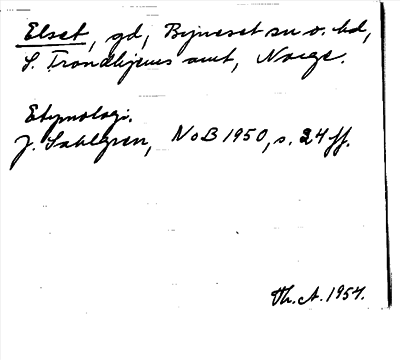 Elset, gd, Bynesset sn o. hd,
S. Trondhjems amt, Norge.
Etymologi.
J. Sahlgren, NoB 1950, s. 24 ff.
Th. A. 1957.